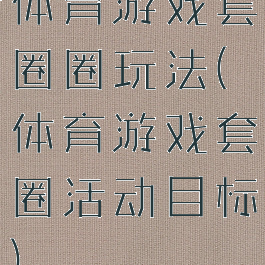 体育游戏套
圈圈玩法(
体育游戏套
圈活动目标
)